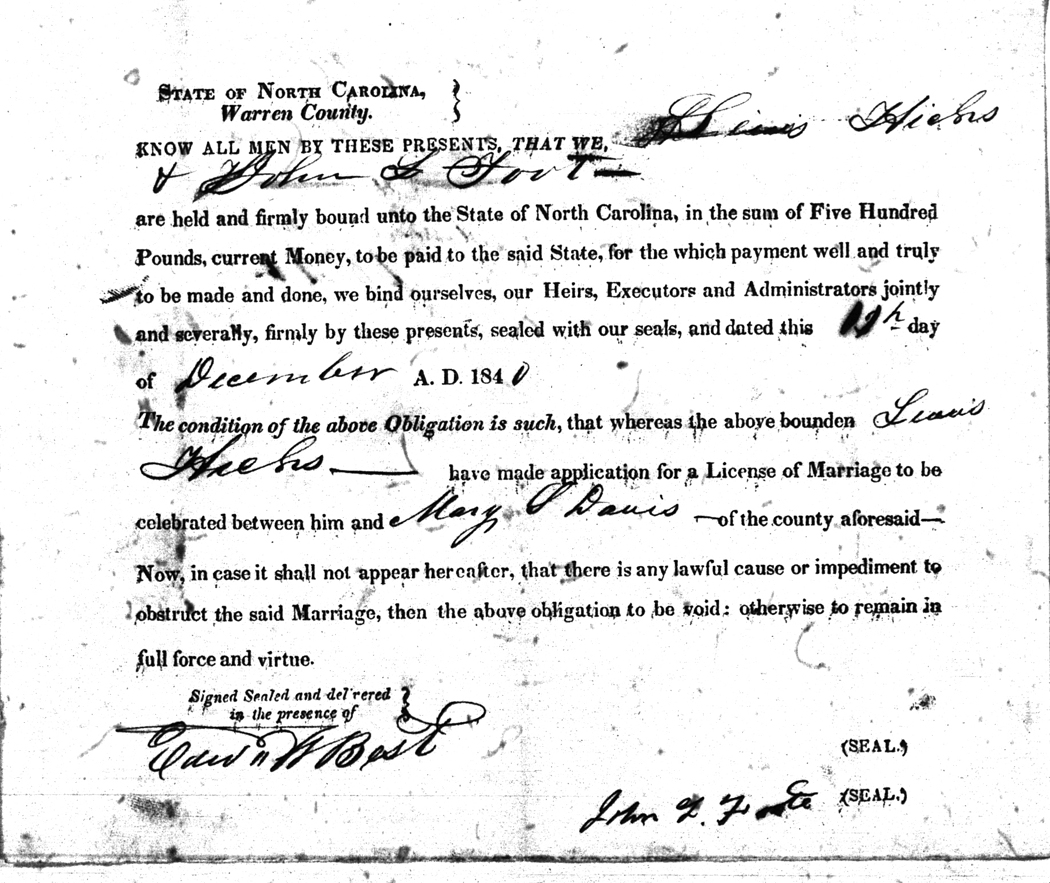 STATE OF NORTH CAROLINA,
Warren County.
KNOW ALL MEN BY THESE PRESENTS, THAT WE, Lewis Hicks
& John L Foot
are held and firmly bound unto the State of North Carolina, in the sum of Five Hundred
Pounds, current Money, to be paid to the said State, for the which payment well and truly
to be made and done, we bind ourselves, our Heirs, Executors and Administrators jointly
and severally, firmly by these presents, sealed with our seals, and dated this day
of December A. D. 1840
The condition of the above Obligation is such, that whereas the above bounden Lewis
Hicks have made application for a License of Marriage to be
celebrated between him and Mary S Davis —of the county aforesaid—
Now, in case it shall not appear hereafter, that there is any lawful cause or impediment to
obstruct the said Marriage, then the above obligation to be void: otherwise to remain in
full force and virtue.
Signed Sealed and delivered
in the presence of
Edwd W Best
(SEAL.)
John L. Foote (SEAL.)